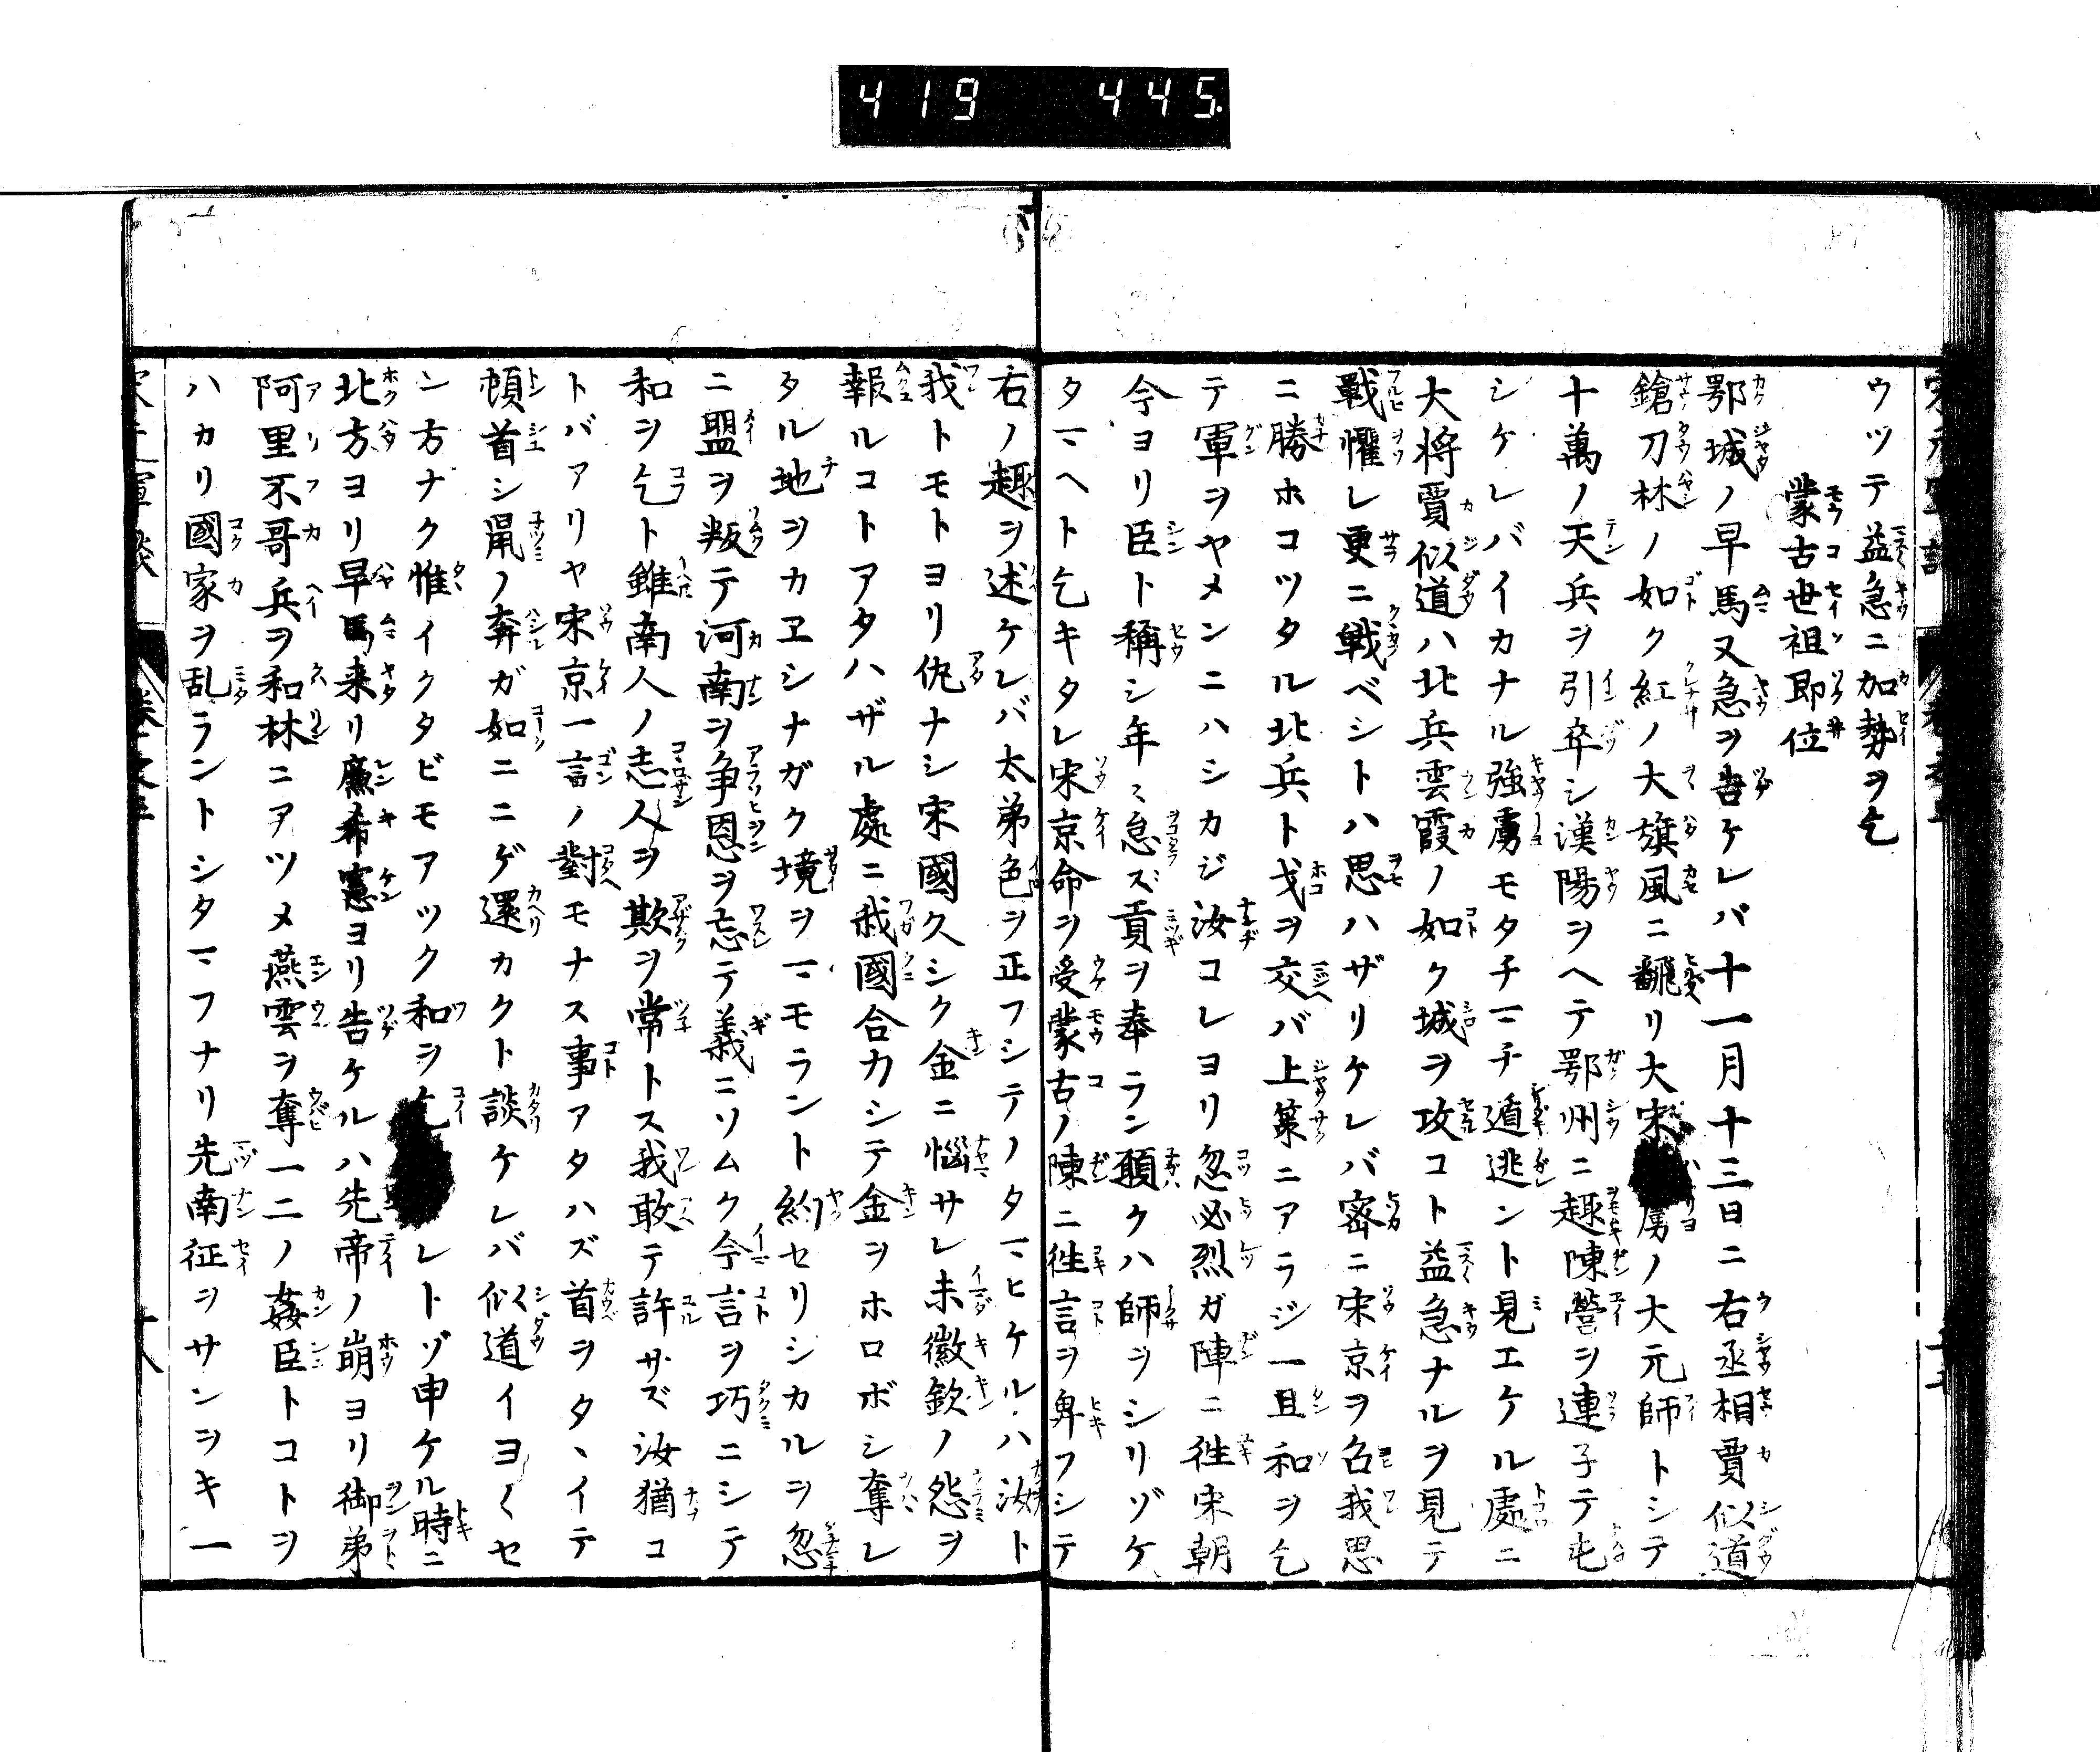 419 445
ウツテ益急ニ加勢ヲ乞
蒙古世祖即位
鄂城ノ早馬又急ヲ告ケレバ十一月十三日ニ右丞相賈似道
鎗刀林ノ如ク紅ノ大旗風ニ飜リ大宋 虜ノ大元師トシテ
十萬ノ天兵ヲ引卒シ漢陽ヲヘテ鄂州ニ趣陳營ヲ連子テ屯
シケレバイカナル強虜モタチマチ遁逃ント見エケル處ニ
大将賈似道ハ北兵雲霞ノ如ク城ヲ攻コト益急ナルヲ見テ
戰懼レ更ニ戦ベシトハ思ハザリケレバ密ニ宋京ヲ召我思
ニ勝ホコツタル北兵ト戈ヲ交バ上策ニアラジ一旦和ヲ乞
テ軍ヲヤメンニハシカジ汝コレヨリ忽必烈ガ陣ニ徃宋朝
今ヨリ臣ト稱シ年〻怠ズ貢ヲ奉ラン願クハ師ヲシリゾケ
タマヘト乞キタレ宋京命ヲ受蒙古ノ陳ニ徃言ヲ卑フシテ
右ノ趣ヲ述ケレバ太弟色ヲ正フシテノタマヒケルハ汝ト
我トモトヨリ仇ナシ宋國久シク金ニ惱サレ未徽欽ノ怨ヲ
報ルコトアタハザル處ニ我國合力シテ金ヲホロボシ奪レ
タル地ヲカヱシナガク境ヲマモラント約セリシカルヲ忽
ニ盟ヲ叛テ河南ヲ争恩ヲ忘テ義ニソムク今言ヲ巧ニシテ
和ヲ乞ト雖南人ノ志人ヲ欺ヲ常トス我敢テ許サズ汝猶コ
トバアリヤ宋京一言ノ對モナス事アタハズ首ヲタヽイテ
頓首シ鼠ノ奔ガ如ニニゲ還カクト談ケレバ似道イヨ〱セ
ン方ナク惟イクタビモアツク和ヲ乞 レトゾ申ケル時ニ
北方ヨリ早馬来リ廉希憲ヨリ告ケルハ先帝ノ崩ヨリ御弟
阿里不哥兵ヲ和林ニアツメ燕雲ヲ奪一二ノ姦臣トコトヲ
ハカリ國家ヲ乱ラントシタマフナリ先南征ヲサシヲキ一